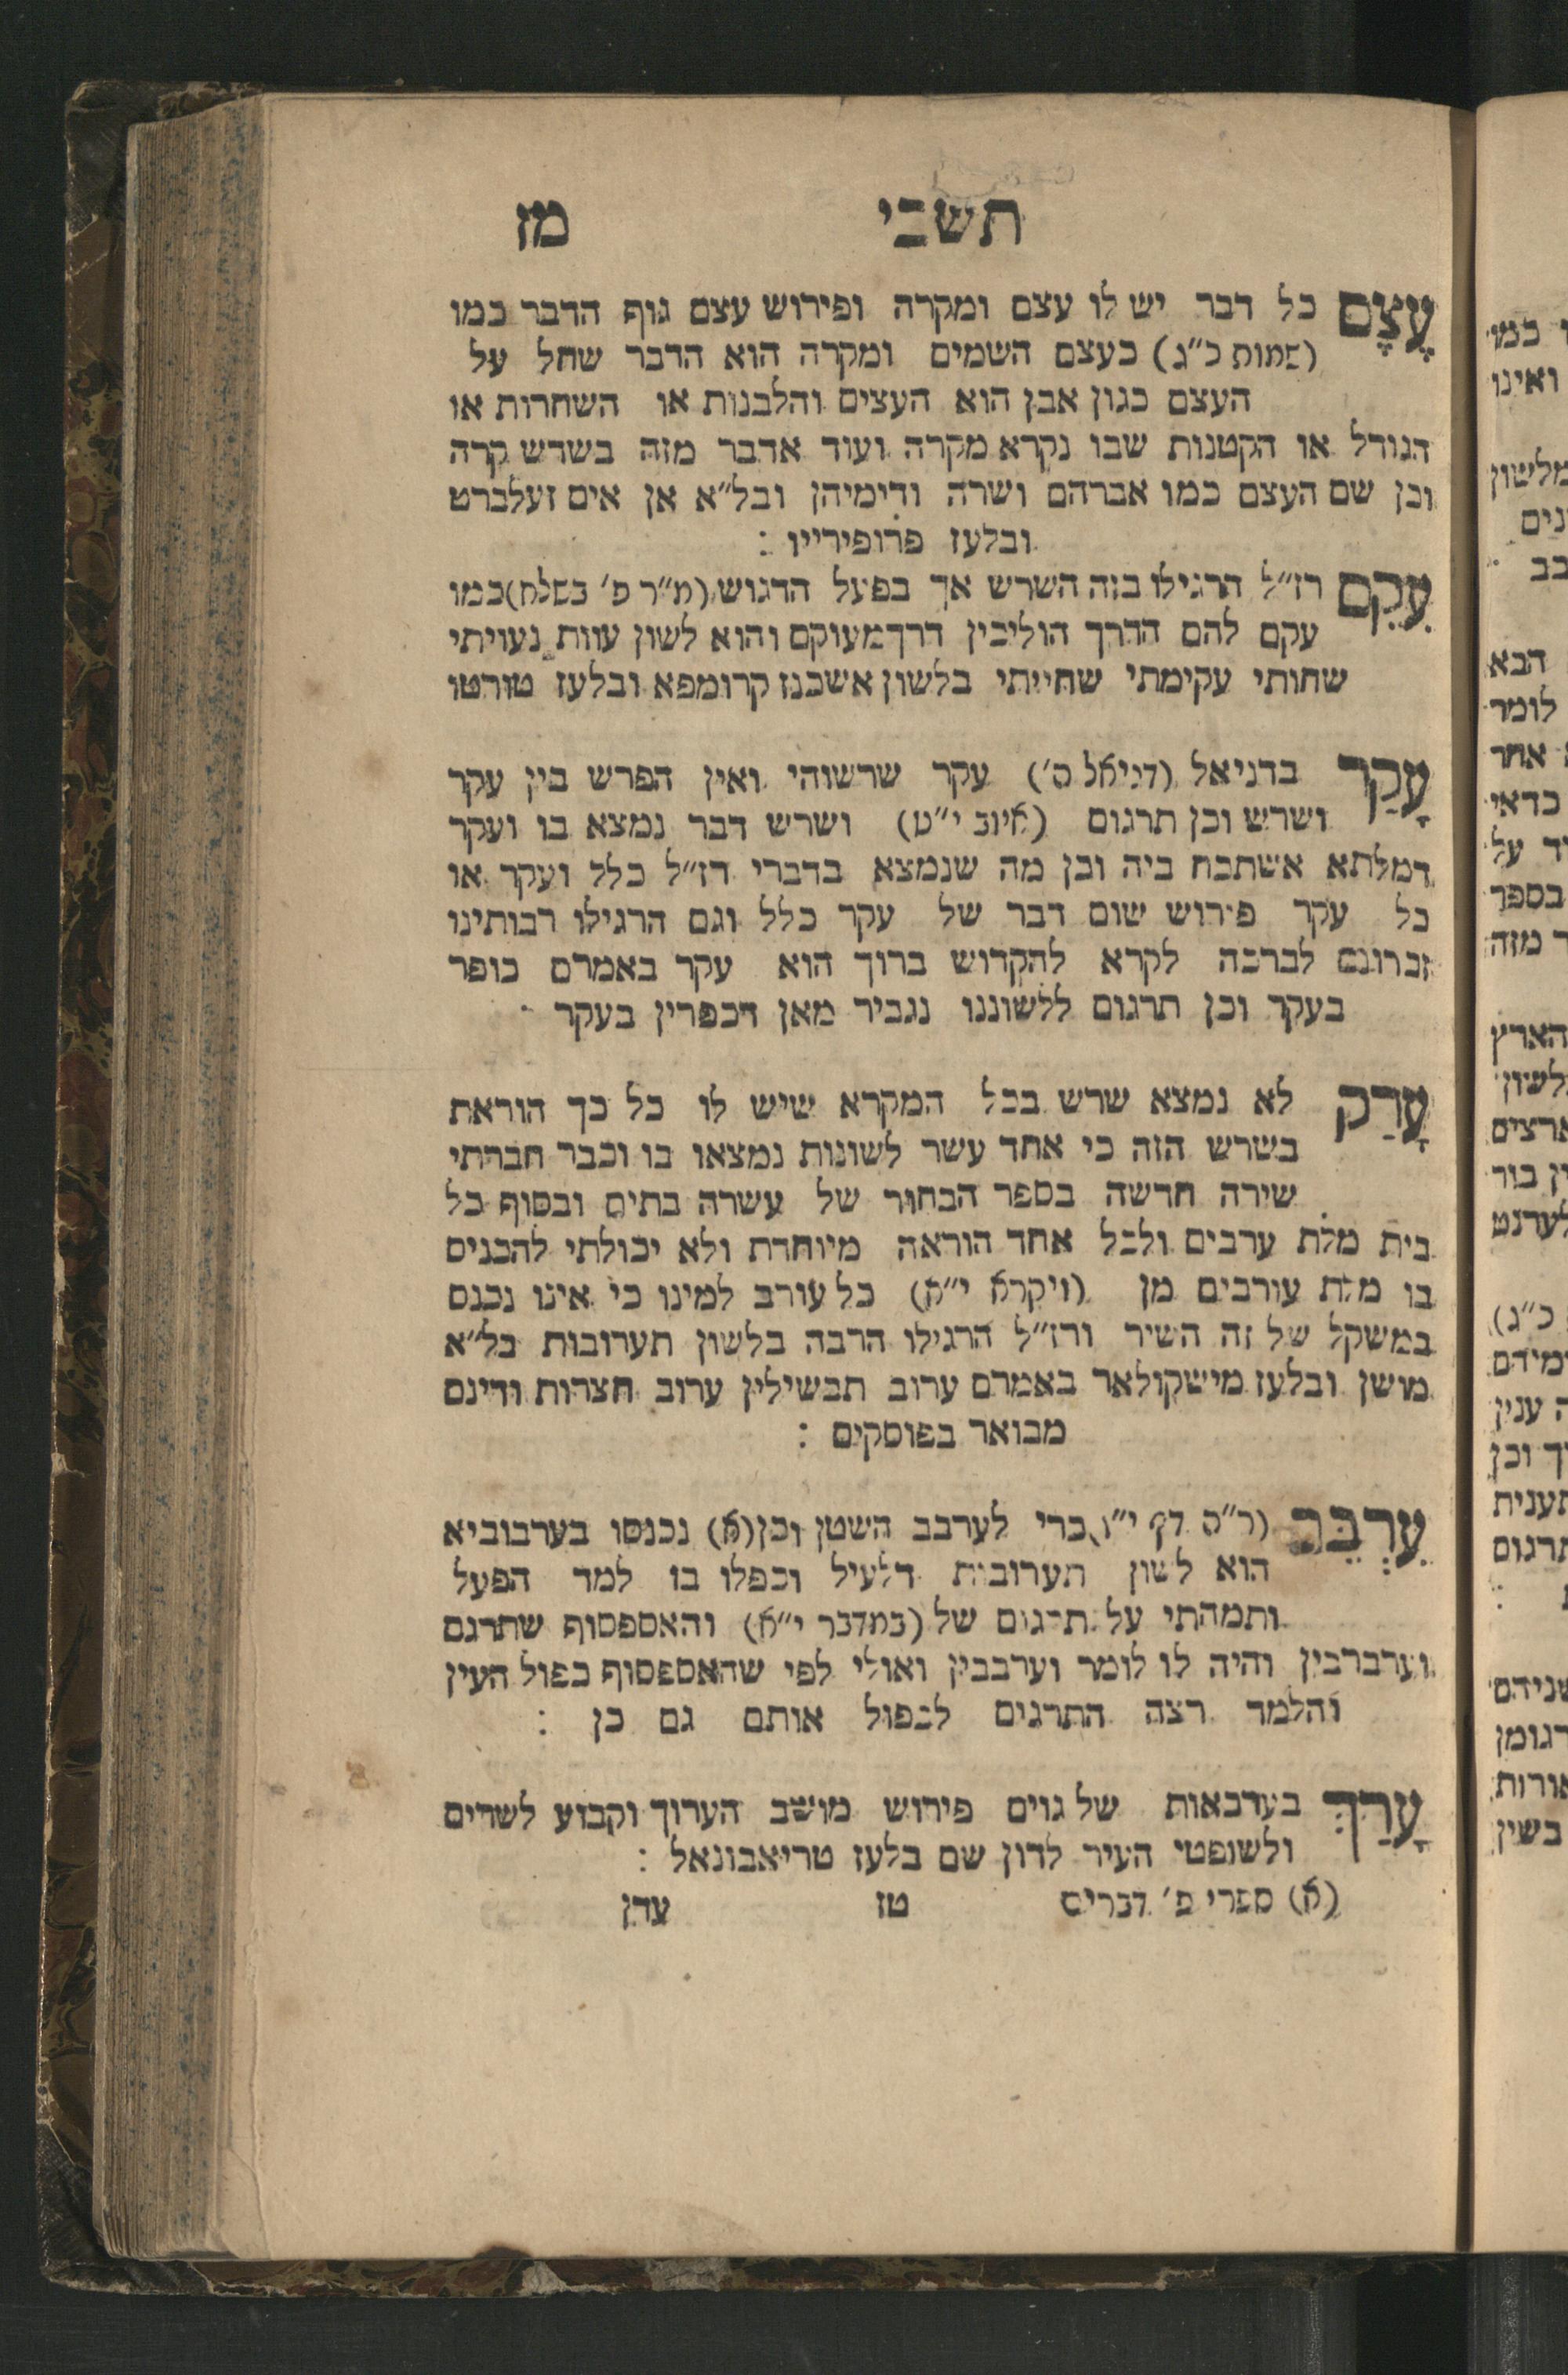 תשבי מז
עֶצֶם כל דבר יש לו עצם ומקרה ופירוש עצם גוף הדבר כמו
(שמות כ״ג) כעצם השמים ומקרה הוא הדבר שחל על
העצם כגון אבן הוא העצים והלבנות או השחרות או
הגודל או הקטנות שבו נקרא מקרה ועוד אדבר מזה בשרש קרה
וכן שם העצם כמו אברהם ושרה ודימיהן ובל״א אן אים זעלברט
ובלעז פרופירייו :
עִקֵם רז״ל הרגילו בזה השרש אך בפעל הדגוש (מ״ר פ׳ בשלח) כמו
עקם להם הדרך הוליכין דרך מעוקם והוא לשון עוות נעויתי
שחותי עקימתי שחייתי בלשון אשכנז קרומפא ובלעז טורטו
עָקַר בדניאל (דניאל ס׳) עקר שרשוהי ואין הפרש בין עקר
ושרש וכן תרגום (איוב י״ט) ושרש דבר נמצא בו ועקר
דמלתא אשתכח ביה וכן מה שנמצא בדברי רז״ל כלל ועקר או
כל עקר פירוש שום דבר של עקר כלל וגם הרגילו רבותינו
זכרונם לברכה לקרא להקדוש ברוך הוא עקר באמרם כופר
בעקר וכן תרגום ללשוננו נגביר מאן דכפרין בעקר
עָרַב לא נמצא שרש בכל המקרא שיש לו כל כך הוראת
בשרש הזה כי אחד עשר לשונות נמצאו בו וכבר חברתי
שירה חדשה בספר הבחור של עשרה בתים ובסוף כל
בית מלת ערבים ולכל אחד הוראה מיוחדת ולא יכולתי להכניס
בו מלת עורבים מן (ויקרא י״א) כל עורב למינו כי אינו נכנס
במשקל של זה השיר ורז״ל הרגילו הרבה בלשון תערובות בל״א
מושן ובלעז מישקולאר באמרם ערוב תבשילין ערוב חצרות ודינם
מבואר בפוסקים :
עִרְבֵּב (ר״ה דף י״ו) כדי לערבב השטן וכן (א) נכנסו בערבוביא
הוא לשון תערובות דלעיל וכפלו בו למד הפעל
ותמהתי על תרגום של (במדבר י״א) והאספסוף שתרגם
וערברבין והיה לו לומר וערבבין ואולי לפי שהאספסוף כפול העין
והלמד רצה התרגים לכפול אותם גם כן :
עָרַךְ בערכאות של גוים פירוש מושב הערוך וקבוע לשרים
ולשופטי העיר לדון שם בלעז טריאבונאל :
(א) ספרי פ׳ דברים טז ערן